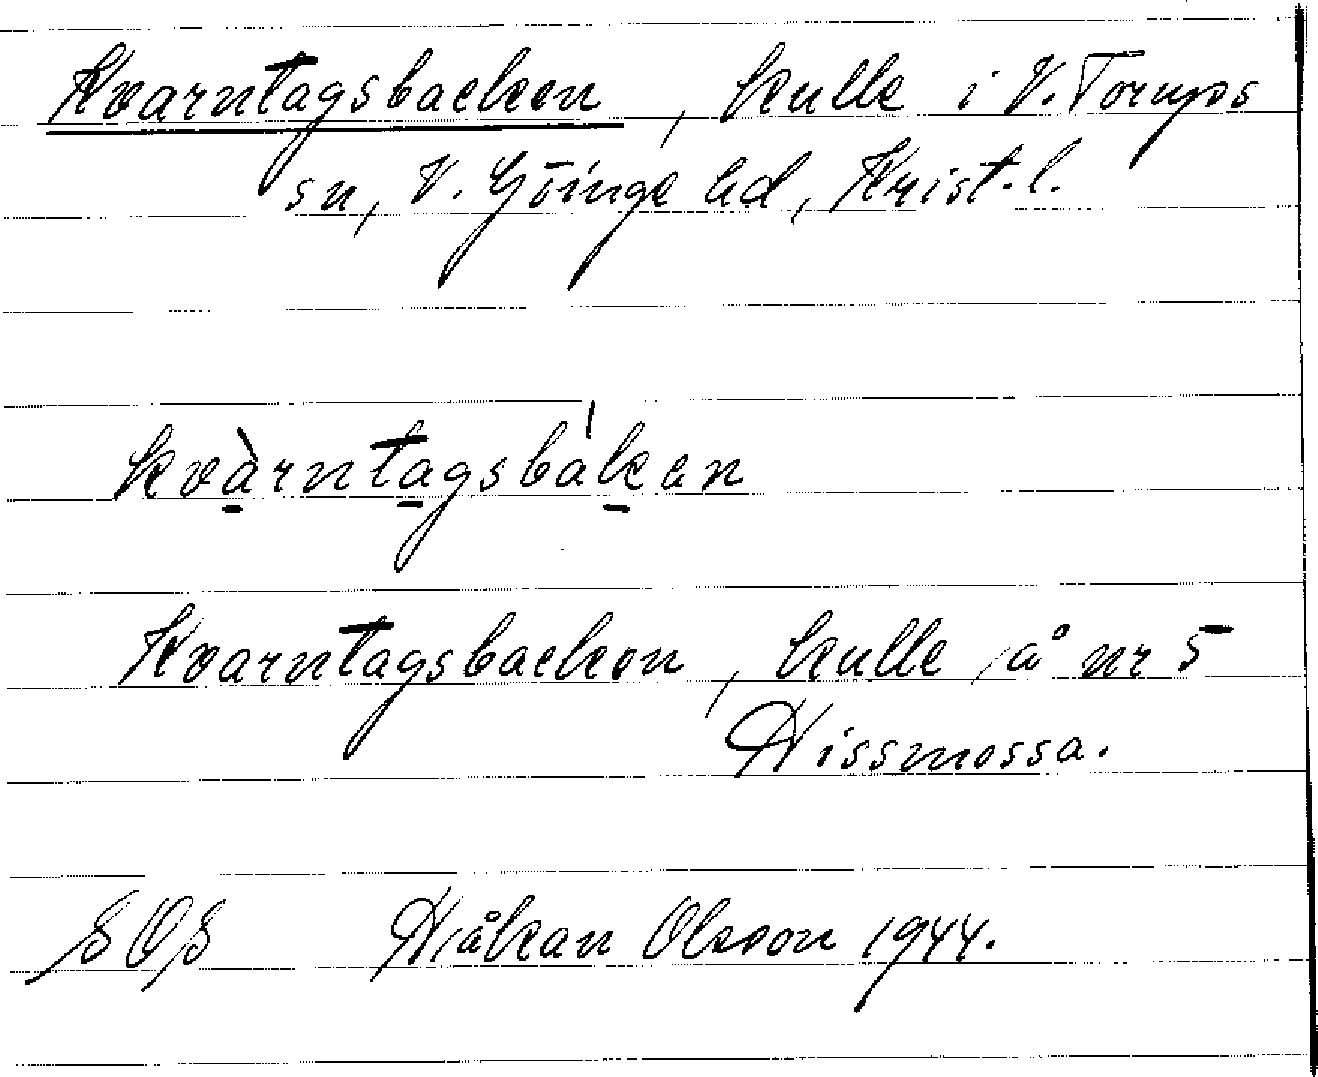 Kvarntagsbacken, kulle i V. Torups
sn, V. Göinge hd, Krist. l.
kvàrntagsbákan
Kvarntagsbacken, kulle, å nr 5
Hissmossa.
SOS Håkan Olsson 1944.